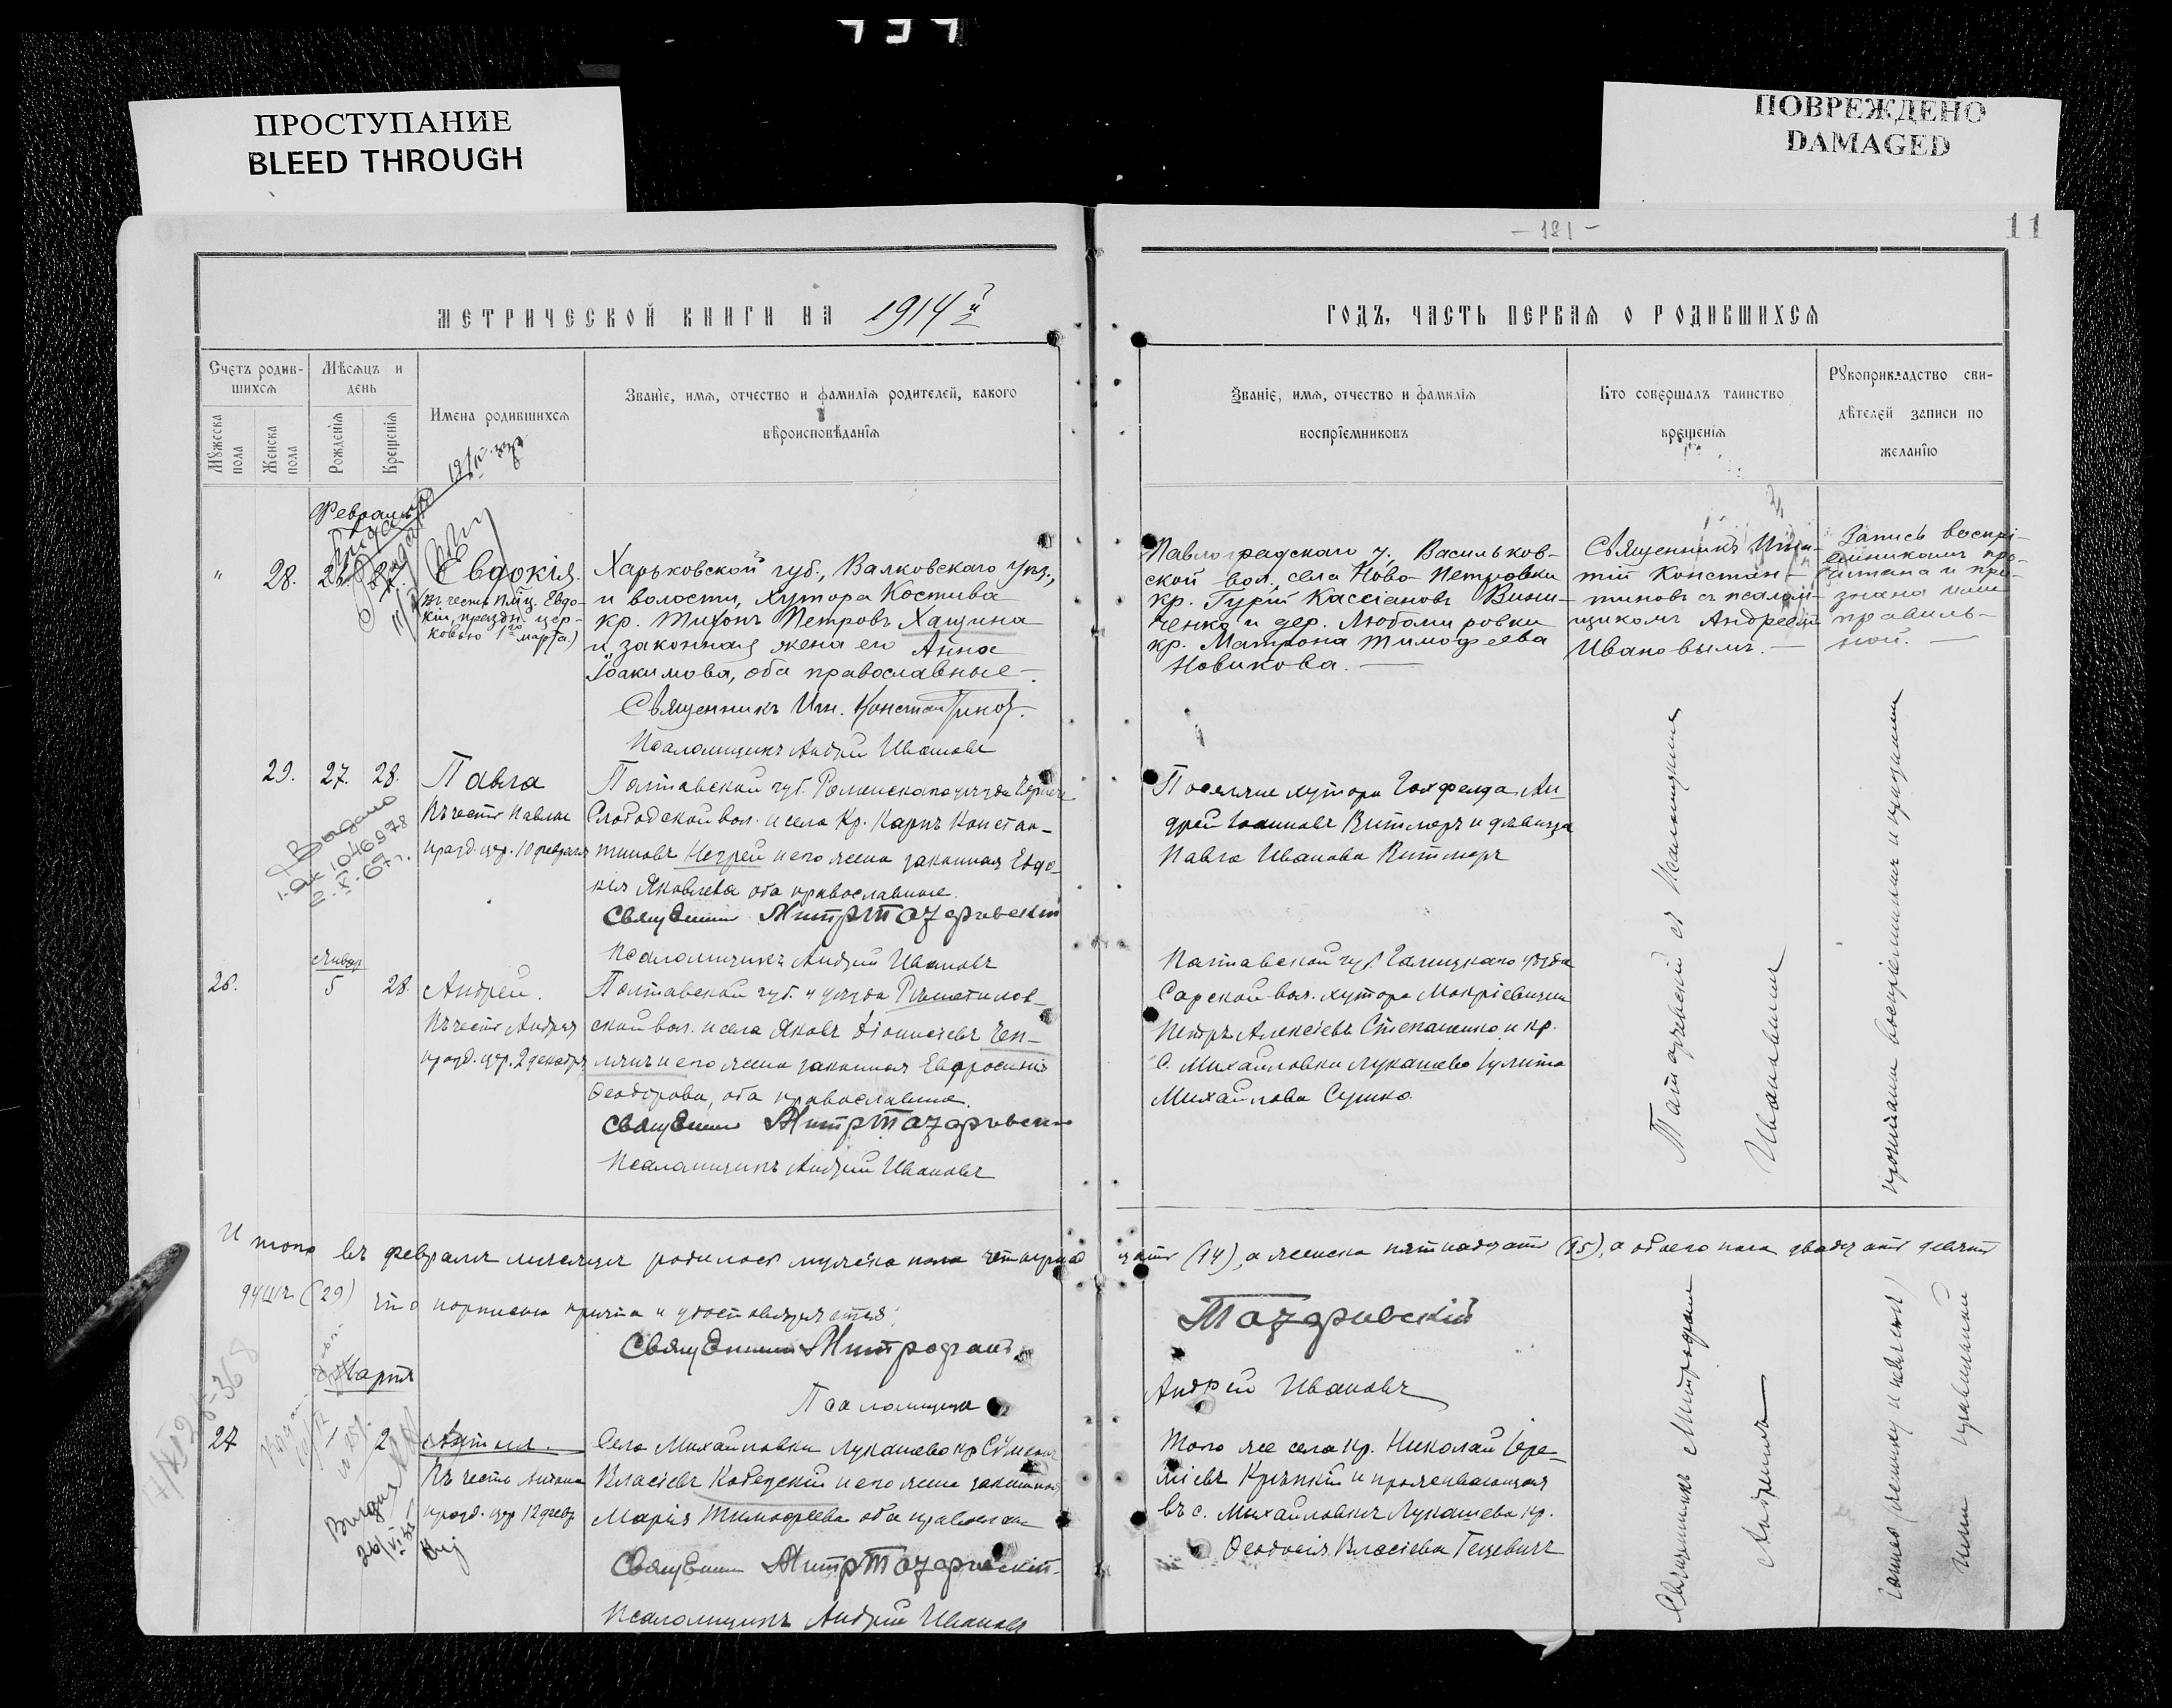 ПРОСТУПАНИЕ
BLEED THROUGH
ПОВРЕЖДЕНО
DAMAGED
— 181 —
11
МЕТРИЧЕСКОЙ КНИГИ НА 1914й
ГОДЪ, ЧАСТЬ ПЕРВАЯ О РОДИВШИХСЯ
Счетъ родив-
шихся
Мѣсяцъ и
день
Мужеска
пола
Женска
пола
Рожденія
Крещенія
Имена родившихся
Званіе, имя, отчество и фамилія родителей, какого
вѣроисповѣданія
Званіе, имя, отчество и фамилія
воспріемниковъ
Кто совершалъ таинство
крещенія
Рукоприкладство сви-
дѣтелей записи по
желанію
Февраль
" 28. 27.
Евдокія.
въ честь пмц. Евдо-
кіи, праздн. цер-
ковью 1го марта.)
Харьковской губ., Валковскаго уѣз.,
и волости, хутора Костива
кр. Тихонъ Петровъ Хащина
и законная жена его Анна
Іоакимова, оба православные.
Священникъ Игн. Константинов.
Псаломщикъ Андрей Ивановъ
Павлоградскаго у. Васильков-
ской вол., села Ново-Петровки
кр. Гурій Кассіановъ Вини-
ченко и дер. Любомировки
кр. Матрона Тимофеева
Новикова. —
Священникъ Игна-
тій Констан-
тиновъ съ псалом-
щикомъ Андреемъ
Ивановымъ. —
Запись воспрі-
емникамъ про-
читана и при-
знана ими
правиль-
ной. —
29. 27. 28. Павла
Въ честь Павлы
празд. цер. 10 февраля
Полтавской губ. Роменскаго уѣзда
Слободской вол. и села Кр. Карпъ Констан-
тиновъ Негрей и его жена законная Евдо-
кія Яковлева оба православные.
Псаломщикъ Андрей Ивановъ
Поселяне хутора Гохфельда Ан-
дрей Іоанновъ Витмеръ и дѣвица
Павла Иванова Витмеръ
Выдано
26. Январ 5 28. Андрей.
Въ честь Андрея
празд. цер. 2 декабря
Полтавской губ. и уѣзда Рѣшетилов-
ской вол. и села Яковъ Діонисіевъ Чеп-
и его жена законная Евфросинія
Ѳеодорова, оба православные.
Псаломщикъ Андрей Ивановъ
Полтавской губ. Гадяцкаго уѣзда
Сарской вол. хутора
Петръ Алексѣевъ Степаненко и кр.
с. Михайловки Лукашево Іулита
Михайлова Сушко.
Татаровскій съ Псаломщикомъ
Ивановымъ
прочитана воспріемникамъ и признана
Итого въ февралѣ мѣсяцѣ родилось мужеска пола четырнад цать (14), а женска пятнадцать (15), а обоего пола двадцать девять
душъ (29) что подписью причта и удостовѣряется:
Священникъ Митрофанъ
Псаломщикъ
Андрей Ивановъ
Мартъ
27 1 2 Антонъ.
Въ честь Антона
празд. цер 12 февр
Села Михайловки Лукашево кр Сѵмеонъ
Власіевъ Кобедскій и его жена законная
Марія Тимофеева оба православн
Псаломщикъ Андрей Ивановъ
Того же села кр. Николай Іере-
міевъ Крѣпкій и проживающая
въ с. Михайловкѣ Лукашево кр.
Ѳеодосія Власіева Гецевичъ
Священникъ Митрофанъ
Андреемъ
Ими правильной